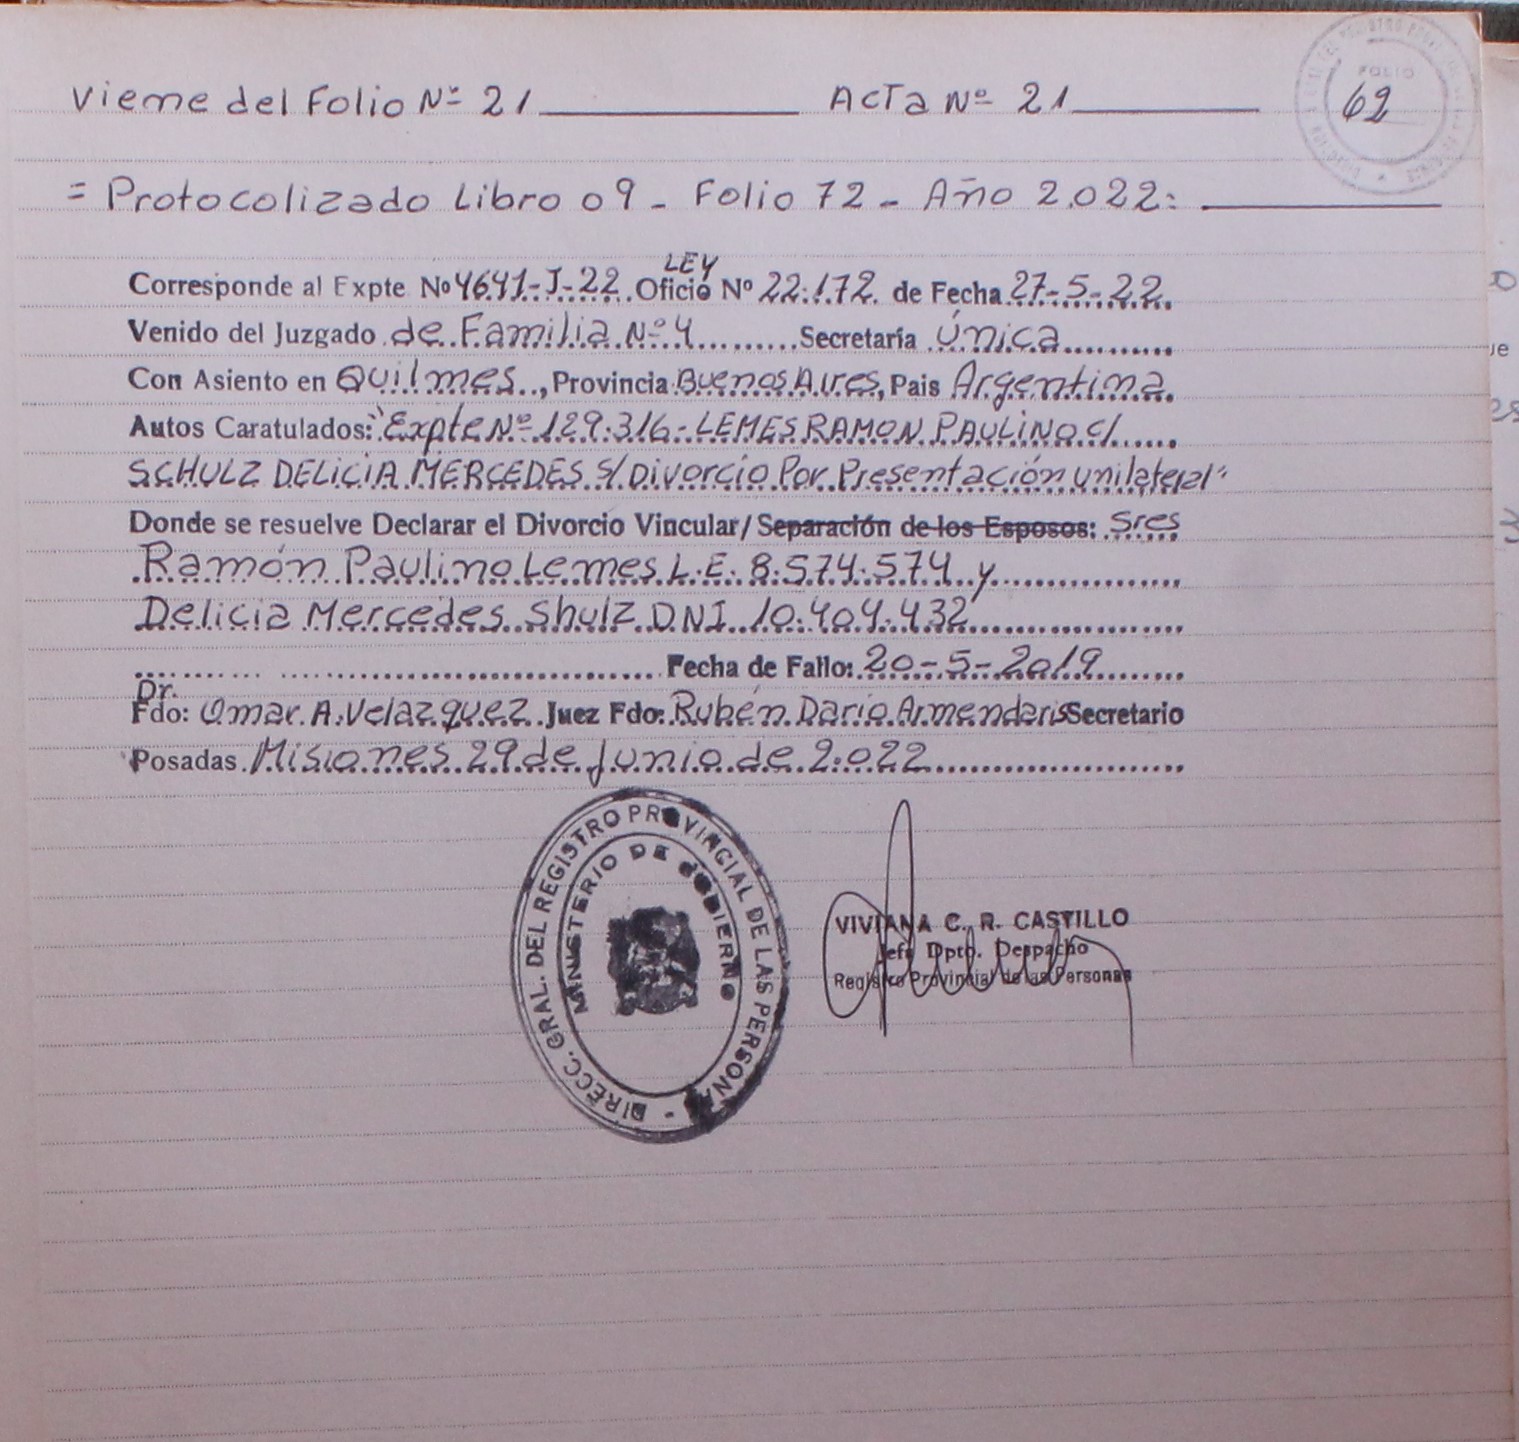 Viene del Folio Nº 21 ACTA Nº 21
FOLIO
62
= Protocolizado Libro 09 - Folio 72 - Año 2.022:
LEY
Corresponde al Expte Nº 4641-J-22 Oficio Nº 22.172 de Fecha 27-5-22
Venido del Juzgado de Familia Nº 4 Secretaría Única
Con Asiento en Quilmes, Provincia Buenos Aires, Pais Argentina
Autos Caratulados: "Expte Nº 129.316 - LEMES RAMON PAULINO c/
SCHULZ DELICIA MERCEDES S/ Divorcio Por Presentación unilateral"
Donde se resuelve Declarar el Divorcio Vincular/ Separación de los Esposos: Sres
Ramón Paulino Lemes L.E. 8.574.574 y
Delicia Mercedes Shulz DNI 10.404.432
Fecha de Fallo: 20-5-2019
Dr.
Fdo: Omar A. Velazquez Juez Fdo: Rubén Dario Armendaris Secretario
Posadas Misiones 29 de Junio de 2.022
DIRECC. GRAL. DEL REGISTRO PROVINCIAL DE LAS PERSONAS -
MINISTERIO DE GOBIERNO
VIVIANA C. R. CASTILLO
Jefe Dpto. Despacho
Registro Provincial de las Personas